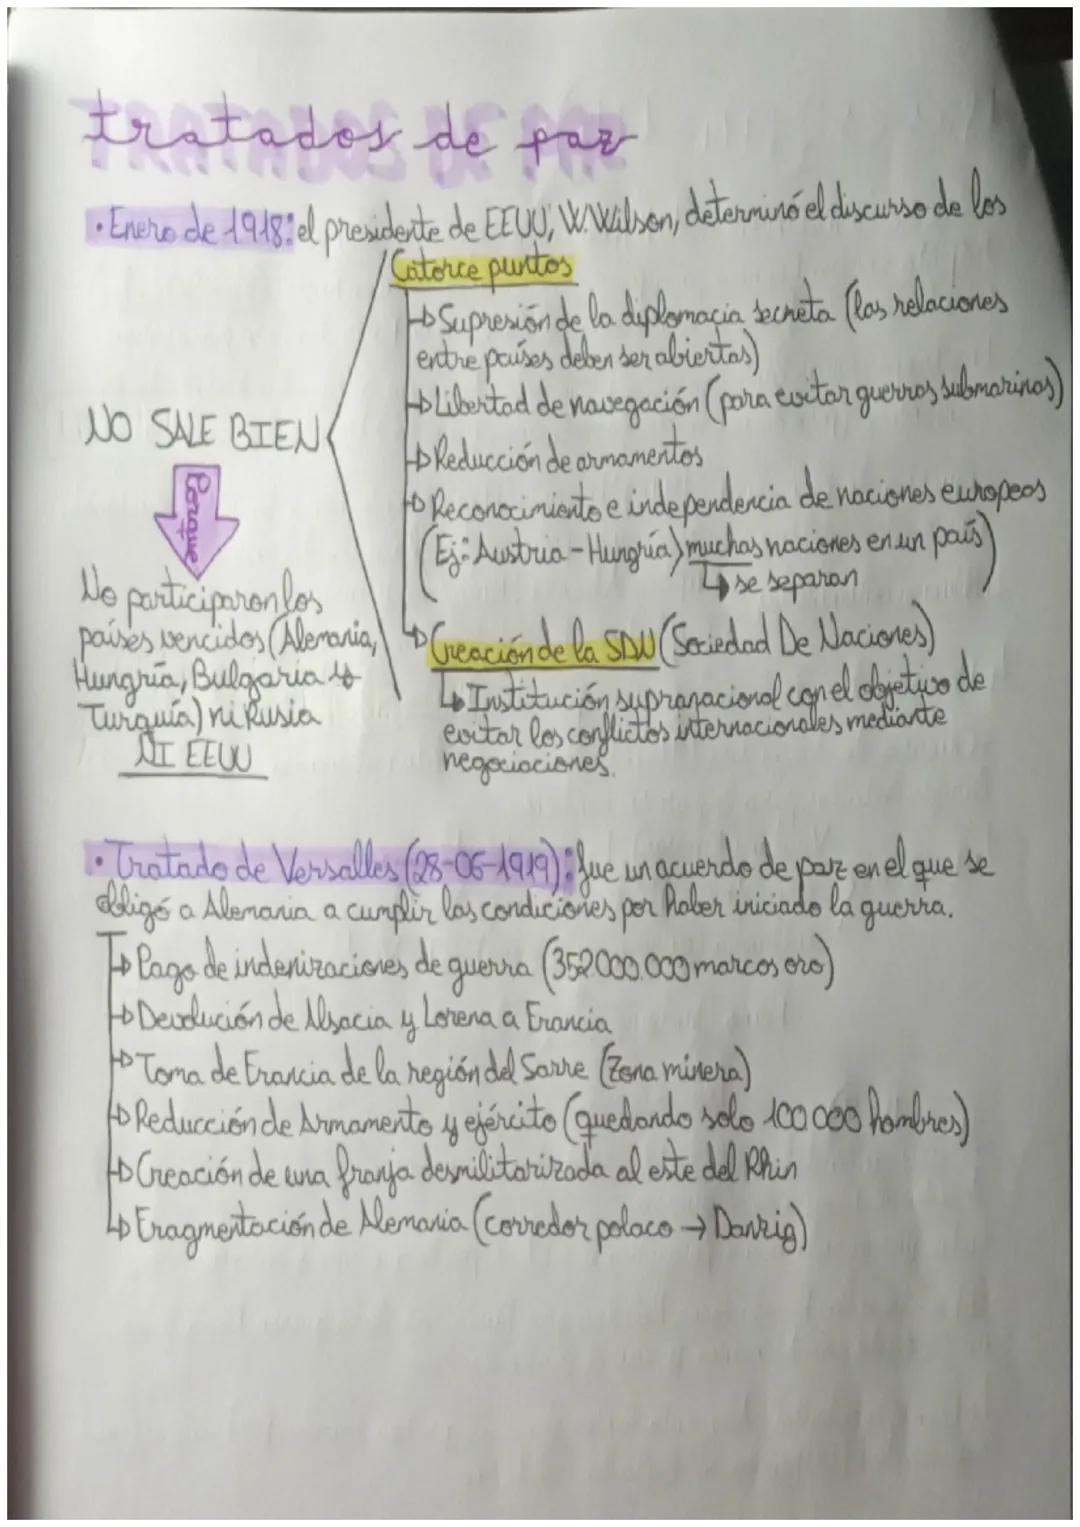 tratados de paz
• Enero de 1918: el presidente de EEUU, W. Wilson, determinó el discurso de los
Catorce puntos
Supresión de la diplomacia secreta (las relaciones
entre países deben ser abiertas)
Libertad de navegación (para evitar guerras submarinas)
Reducción de armamentos
Reconocimiento e independencia de naciones europeas
(Ej: Austria-Hungría) muchas naciones en un país)
↳ se separan
Creación de la SDN (Sociedad De Naciones)
↳ Institución supranacional con el objetivo de
evitar los conflictos internacionales mediante
negociaciones.
NO SALE BIEN
Porque
No participaron los
países vencidos (Alemania,
Hungría, Bulgaria y
Turquía) ni Rusia
NI EEUU
• Tratado de Versalles (28-06-1919): fue un acuerdo de paz en el que se
obligó a Alemania a cumplir las condiciones por haber iniciado la guerra.
Pago de indenizaciones de guerra (352000.000 marcos oro)
Devolución de Alsacia y Lorena a Francia
Toma de Francia de la región del Sarre (Zona minera)
Reducción de Armamento y ejército (quedando solo 100000 hombres)
Creación de una franja desmilitarizada al este del Rhin
Fragmentación de Alemania (corredor polaco → Danzig)